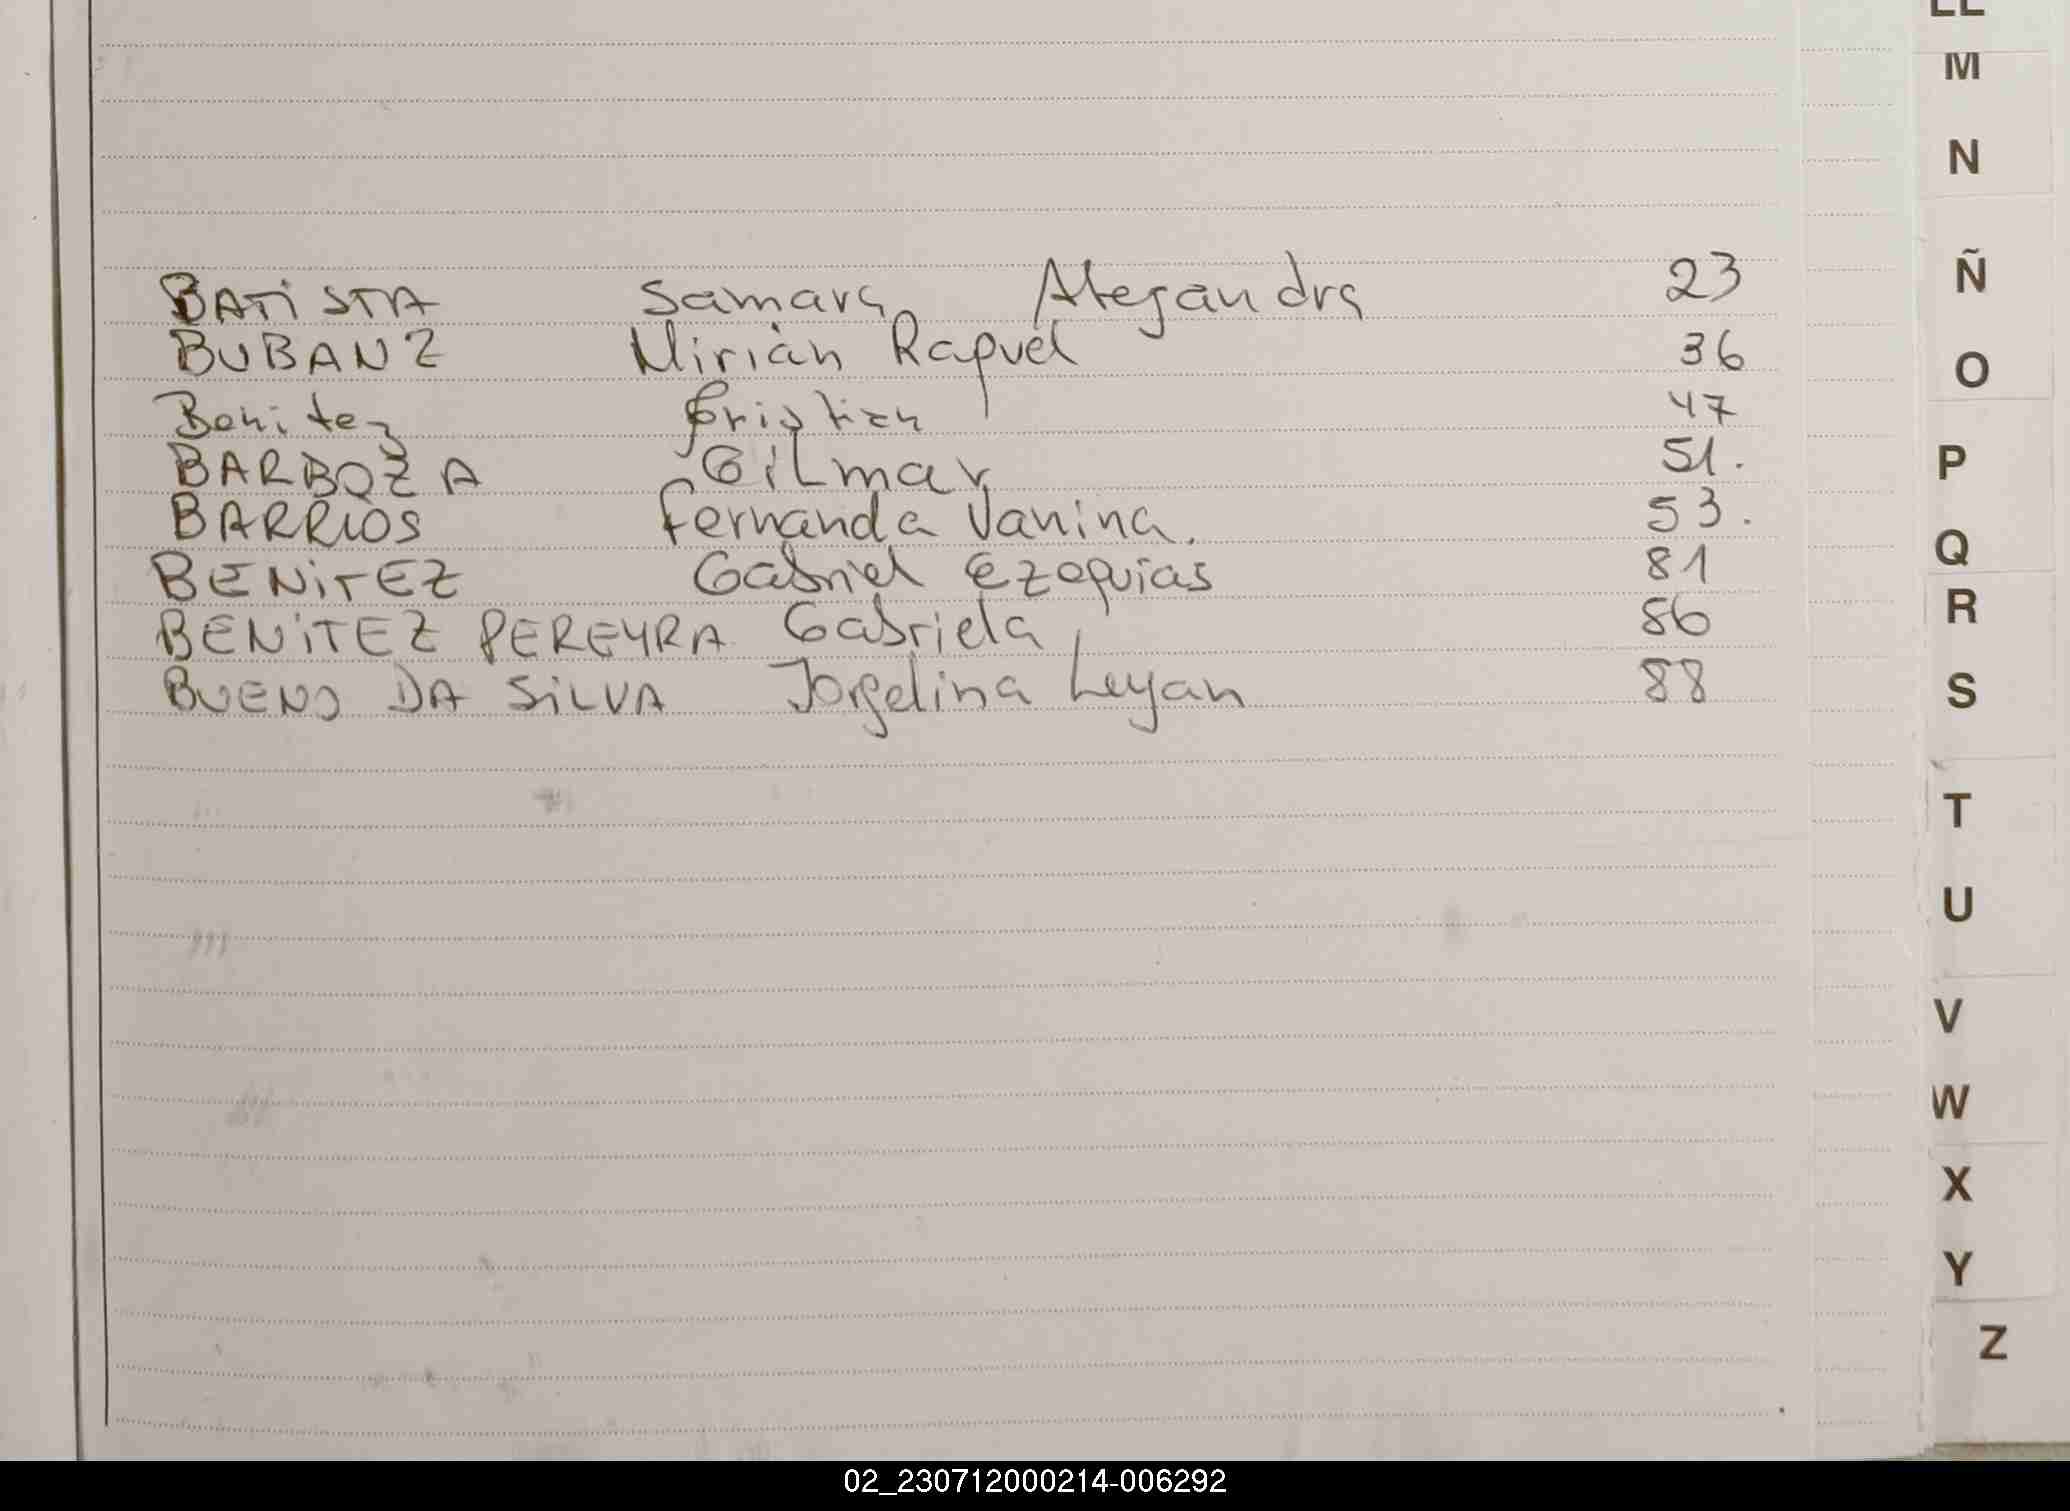 LL
M
N
Ñ
O
P
Q
R
S
T
U
V
W
X
Y
Z
BATiSTA Samara Alejandra 23
BUBANZ Mirian Raquel 36
Benitez Cristian 47
BARBOZA GiLmar 51.
BARRIOS Fernanda Vanina. 53.
BENiTEZ Gabriel Ezequias 81
BENiTEZ PEREYRA Gabriela 86
BUENO DA SiLVA Jorgelina Leyan 88
02_230712000214-006292